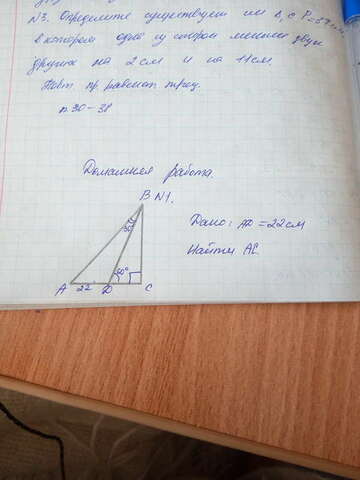 N3. Определите существует ли Δ, с P=
в котором одна из сторон меньше двух
других на 2 см и на 11 см.
Повт. пр. равенст. треуг.
п. 30-38
Домашняя работа.
N1.
B
30°
60°
A
22
D
C
Дано: AD = 22 см
Найти AC.